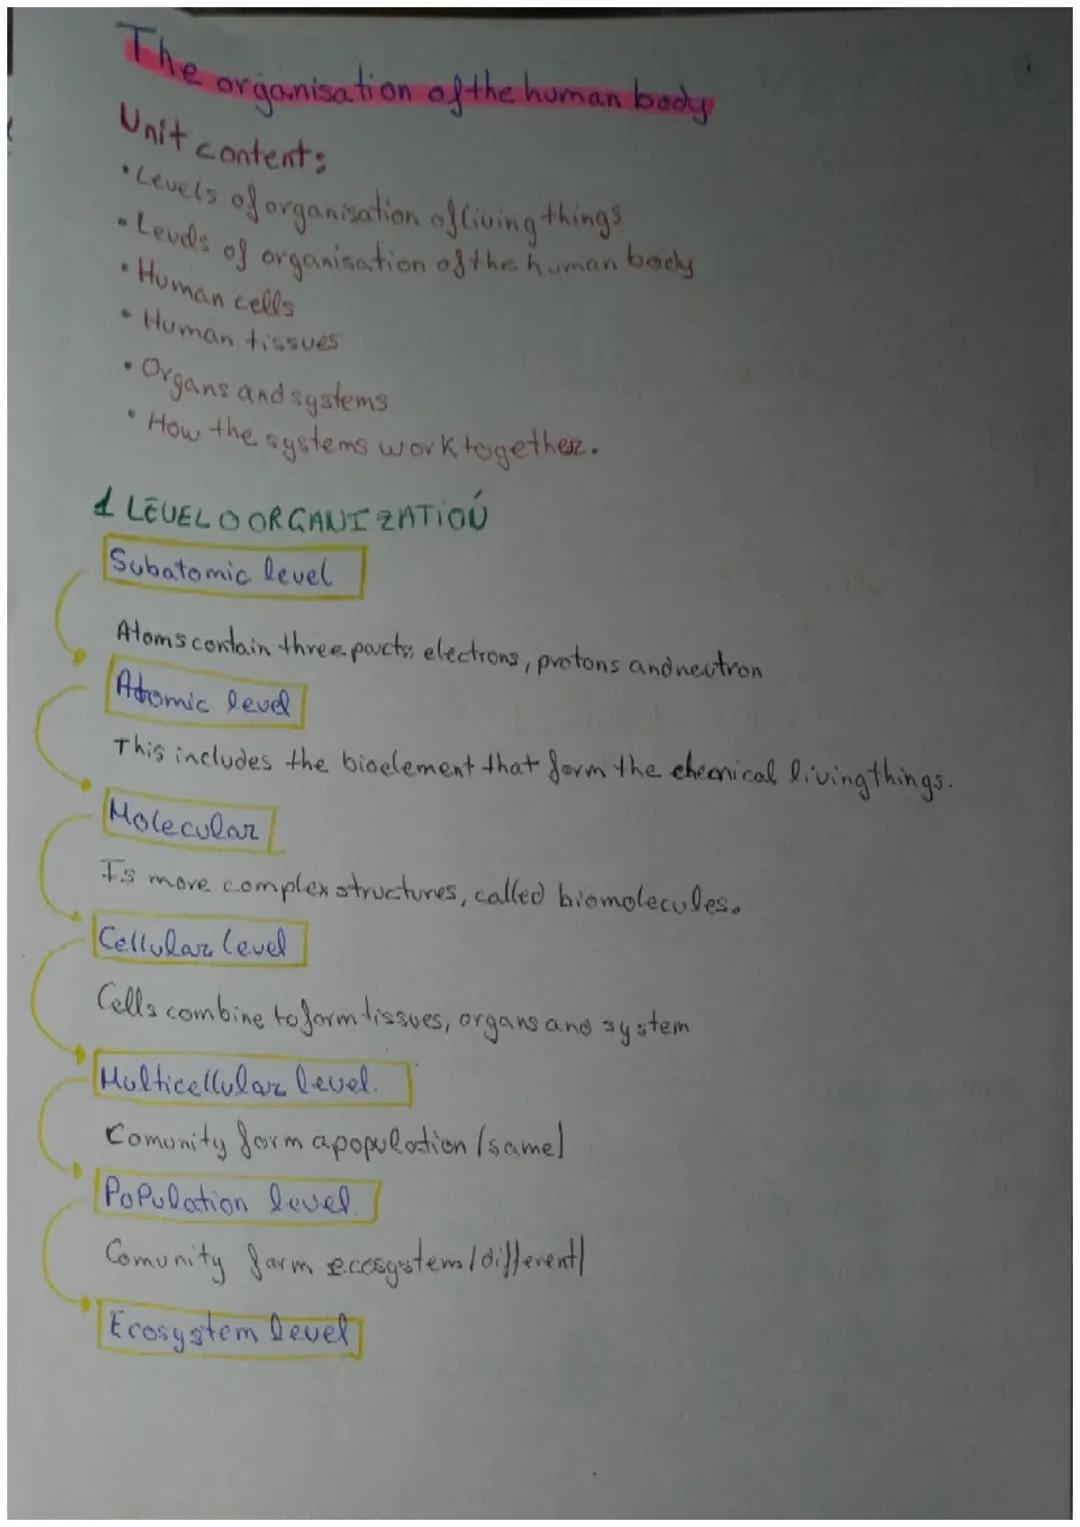 The organisation of the human body
Unit content:
• Levels of organisation of living things
• Levels of organisation of the human body
• Human cells
• Human tissues
• Organs and systems
• How the systems work together.
1 LEVEL O ORGANIZATION
Subatomic level
Atoms contain three parts: electrons, protons and neutron
Atomic level
This includes the bioelement that form the chemical living things.
Molecular
Is more complex structures, called biomolecules.
Cellular level
Cells combine to form tissues, organs and system
Multicellular level.
Comunity form a population (same)
Population level.
Comunity form ecosystems (different)
Ecosystem level